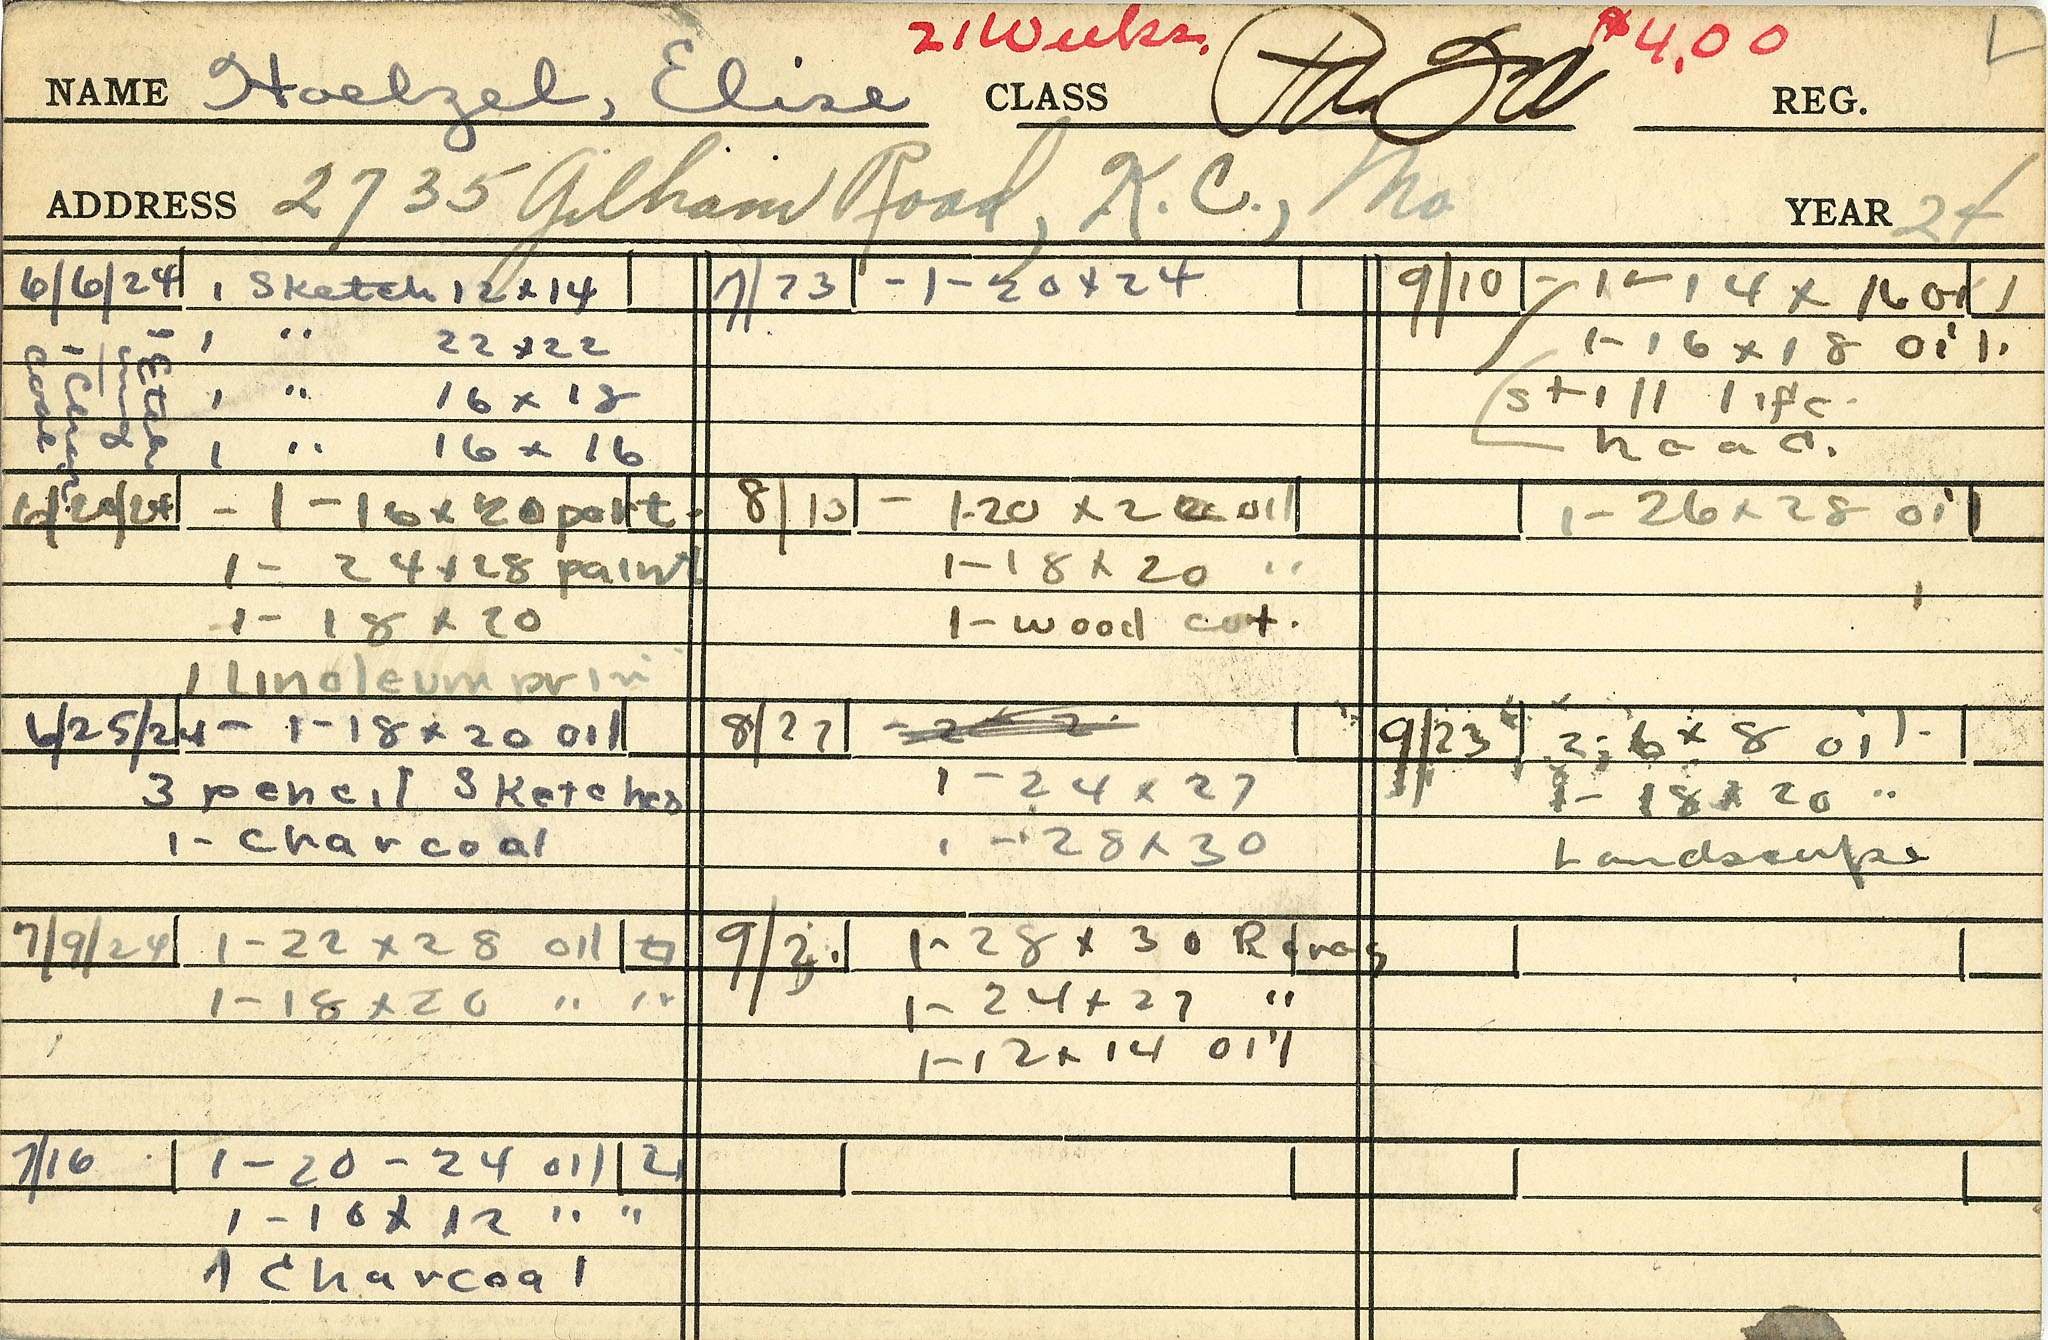 21 Weeks. $4.00
NAME Hoelzel, Elise CLASS REG.
ADDRESS 2735 Gilham Road, K.C., Mo YEAR 24
6/6/24 1 Sketch 12x14
1 " 22x22
1 " 16x18
1 " 16x16
6/20/24 - 1-16x20 port.
1- 24x28 paint
1- 18x20
1 Linoleum prin
6/25/24 - 1-18x20 oil
3 pencil Sketches
1- Charcoal
7/9/24 1-22x28 oil
1-18x20 " "
7/16 1-20-24 oil
1-10x12 " "
1 Charcoal
7/23 -1-20x24
8/13 - 1-20x22 oil
1-18x20 "
1-wood cut.
8/27
1-24x27
1-28x30
9/2. 1-28x30
1-24x27 "
1-12x14 oil
9/10 -1-14x16 oil
1-16x18 oil.
still life.
head.
1-26x28 oil
9/23 2-6x8 oil.
1-18x20 "
Landscape